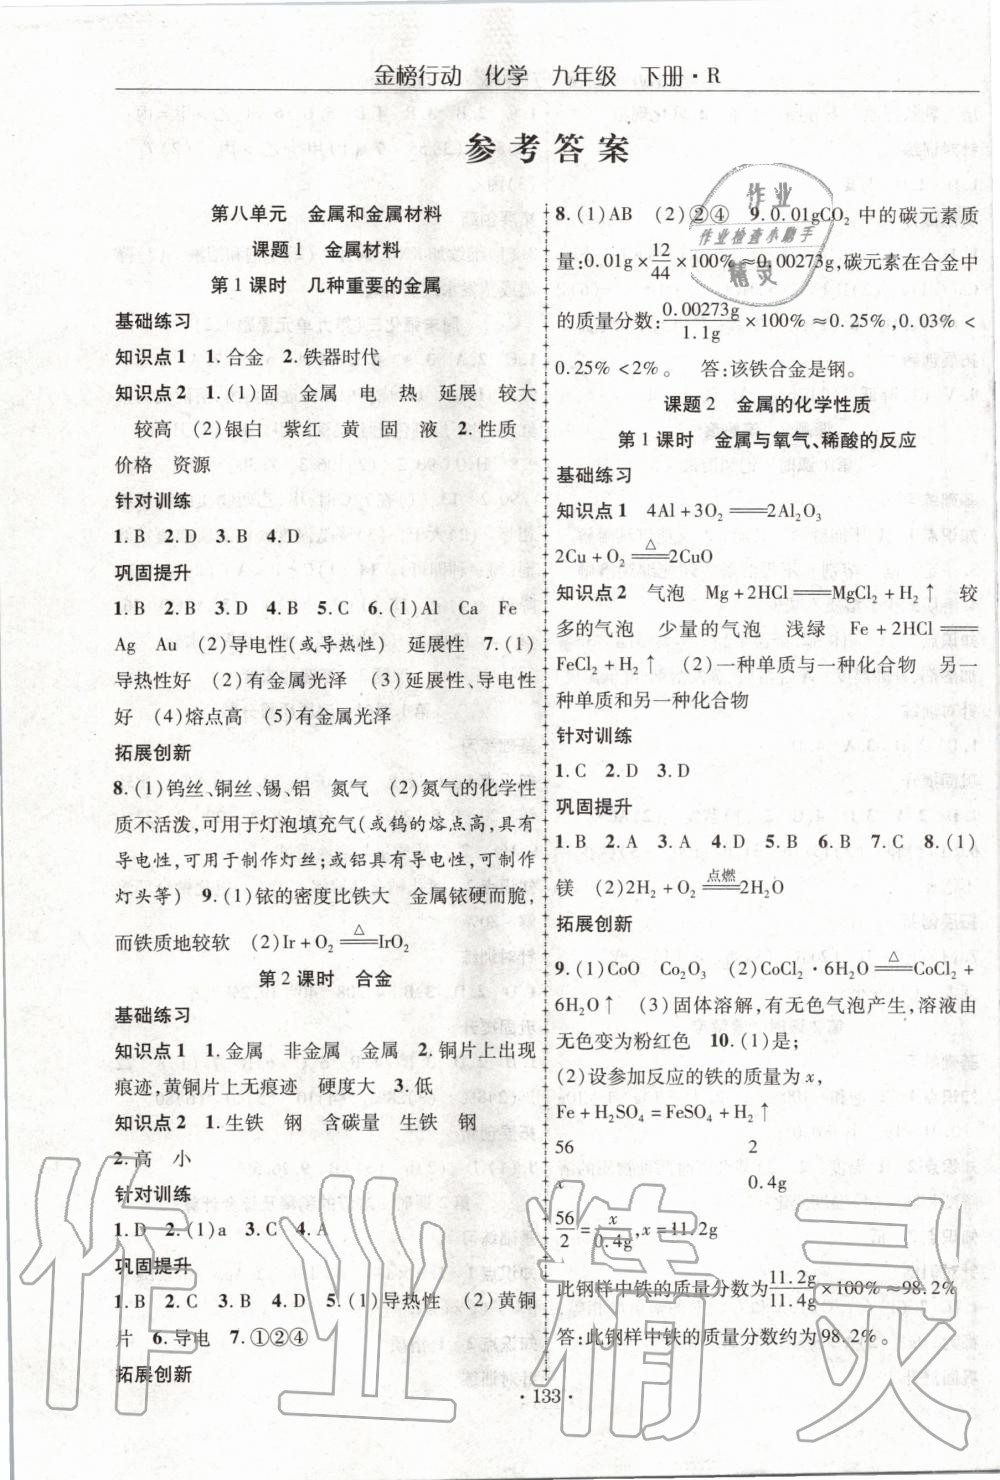 金榜行动 化学 九年级 下册·R
参考答案
第八单元 金属和金属材料
课题1 金属材料
第1课时 几种重要的金属
基础练习
知识点1 1.合金 2.铁器时代
知识点2 1.(1)固 金属 电 热 延展 较大
较高 (2)银白 紫红 黄 固 液 2.性质
价格 资源
针对训练
1.B 2.D 3.B 4.D
巩固提升
1.B 2.B 3.D 4.B 5.C 6.(1)Al Ca Fe
Ag Au (2)导电性(或导热性) 延展性 7.(1)
导热性好 (2)有金属光泽 (3)延展性、导电性
好 (4)熔点高 (5)有金属光泽
拓展创新
8.(1)钨丝、铜丝、锡、铝 氮气 (2)氮气的化学性
质不活泼,可用于灯泡填充气(或钨的熔点高,具有
导电性,可用于制作灯丝;或铝具有导电性,可制作
灯头等) 9.(1)铱的密度比铁大 金属铱硬而脆,
而铁质地较软 (2)Ir+O2 =△= IrO2
第2课时 合金
基础练习
知识点1 1.金属 非金属 金属 2.铜片上出现
痕迹,黄铜片上无痕迹 硬度大 3.低
知识点2 1.生铁 钢 含碳量 生铁 钢
2.高 小
针对训练
1.D 2.(1)a 3.C 4.A
巩固提升
1.B 2.C 3.B 4.D 5.(1)导热性 (2)黄铜
片 6.导电 7.①②④
拓展创新
8.(1)AB (2)②④ 9.0.01gCO2 中的碳元素质
量:0.01g×12/44×100%≈0.00273g,碳元素在合金中
的质量分数:0.00273g/1.1g×100%≈0.25%,0.03%<
0.25%<2%。 答:该铁合金是钢。
课题2 金属的化学性质
第1课时 金属与氧气、稀酸的反应
基础练习
知识点1 4Al+3O2══2Al2O3
2Cu+O2 =△= 2CuO
知识点2 气泡 Mg+2HCl══MgCl2+H2↑ 较
多的气泡 少量的气泡 浅绿 Fe+2HCl══
FeCl2+H2↑ (2)一种单质与一种化合物 另一
种单质和另一种化合物
针对训练
1.C 2.D 3.D
巩固提升
1.B 2.A 3.A 4.D 5.B 6.B 7.C 8.(1)
镁 (2)2H2+O2 =点燃= 2H2O
拓展创新
9.(1)CoO Co2O3 (2)CoCl2·6H2O =△= CoCl2+
6H2O↑ (3)固体溶解,有无色气泡产生,溶液由
无色变为粉红色 10.(1)是;
(2)设参加反应的铁的质量为x,
Fe+H2SO4=FeSO4+H2↑
56 2
x 0.4g
56/2=x/0.4g,x=11.2g
此钢样中铁的质量分数为11.2g/11.4g×100%≈98.2%
答:此钢样中铁的质量分数约为98.2%。
·133·
作业
作业检查小助手
精灵
作业精灵